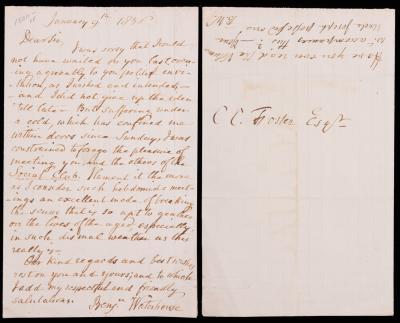 January 9th 1835
Dear Sir,
I was sorry that I could
not have waited on you last even-
ing agreeably to your polite invi-
tation, as I wished and intended—
and I did not give up the idea
till late — But suffering under
a cold, which has confined me
within doors since Sunday, I was
constrained to forego the pleasure of
meeting you and the others of the
Social Club. I lament it the more
as I consider such hebdomadal meet-
ings an excellent mode of breaking
the scum that is so apt to gather
on the lives of the aged, especially
in such dismal weather as this
really is—
Our kind regards and best wishes
rest on you and yours, and to which
I add my respectful and friendly
salutations.
Benjn Waterhouse
Have you ever read the
accompanies this? — Mine
Uncle Joseph
B.W.
C C Foster Esqr